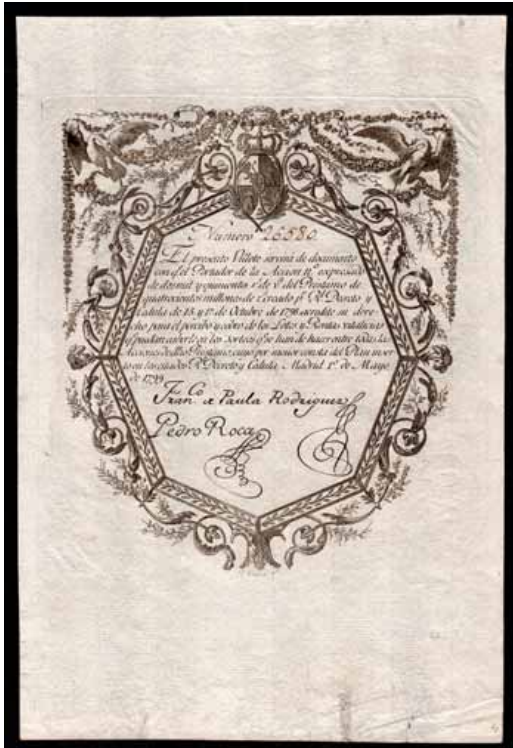 Número 26.580.
El presente Villete servirá de documento
con q.e el Portador de la Accion n.o expresado
de dos mil y quinientos r.s de v.n del Prestamo de
quatrocientos millones de r.s creado p.r R.l Decreto y
Cédula de 15 y 17 de Octubre de 1798 acredite su dere-
cho para el percibo y cobro de los Lotes y Rentas vitalicias
q.e puedan caverle en los Sorteos q.e han de hacer entre todas las
Acciones de dho Prestamo, cuyo por menor consta del Plan inser-
to en los citados R.l Decreto y Cédula. Madrid 1.o de Mayo
de 1799
Fran.co a Paula Rodriguez
Pedro Roca